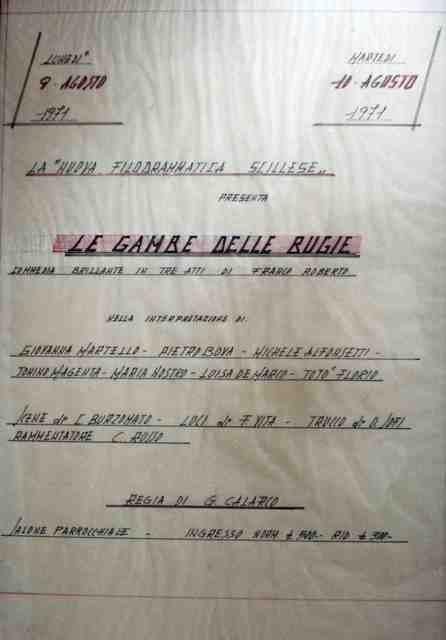 LUNEDI' MARTEDI
9 - AGOSTO 10 - AGOSTO
1971 1971
LA "NUOVA FILODRAMMATICA SCILLESE"
PRESENTA
LE GAMBE DELLE BUGIE
COMMEDIA BRILLANTE IN TRE ATTI DI FRANCO ROBERTO
NELLA INTERPRETAZIONE DI:
GIOVANNA MARTELLO - PIETRO BOVA - MICHELE ALFONSETTI -
TONINO MAGENTA - MARIA NOSTRO - LUISA DE MARIO - TOTO' FLORIO
SCENE di C BURZOMATO - LUCI di F. VITA - TRUCCO di D. SOFI
RAMMENTATORE C. ROSSO
REGIA DI G. CALARCO
SALONE PARROCCHIALE - INGRESSO NORM £ RID £